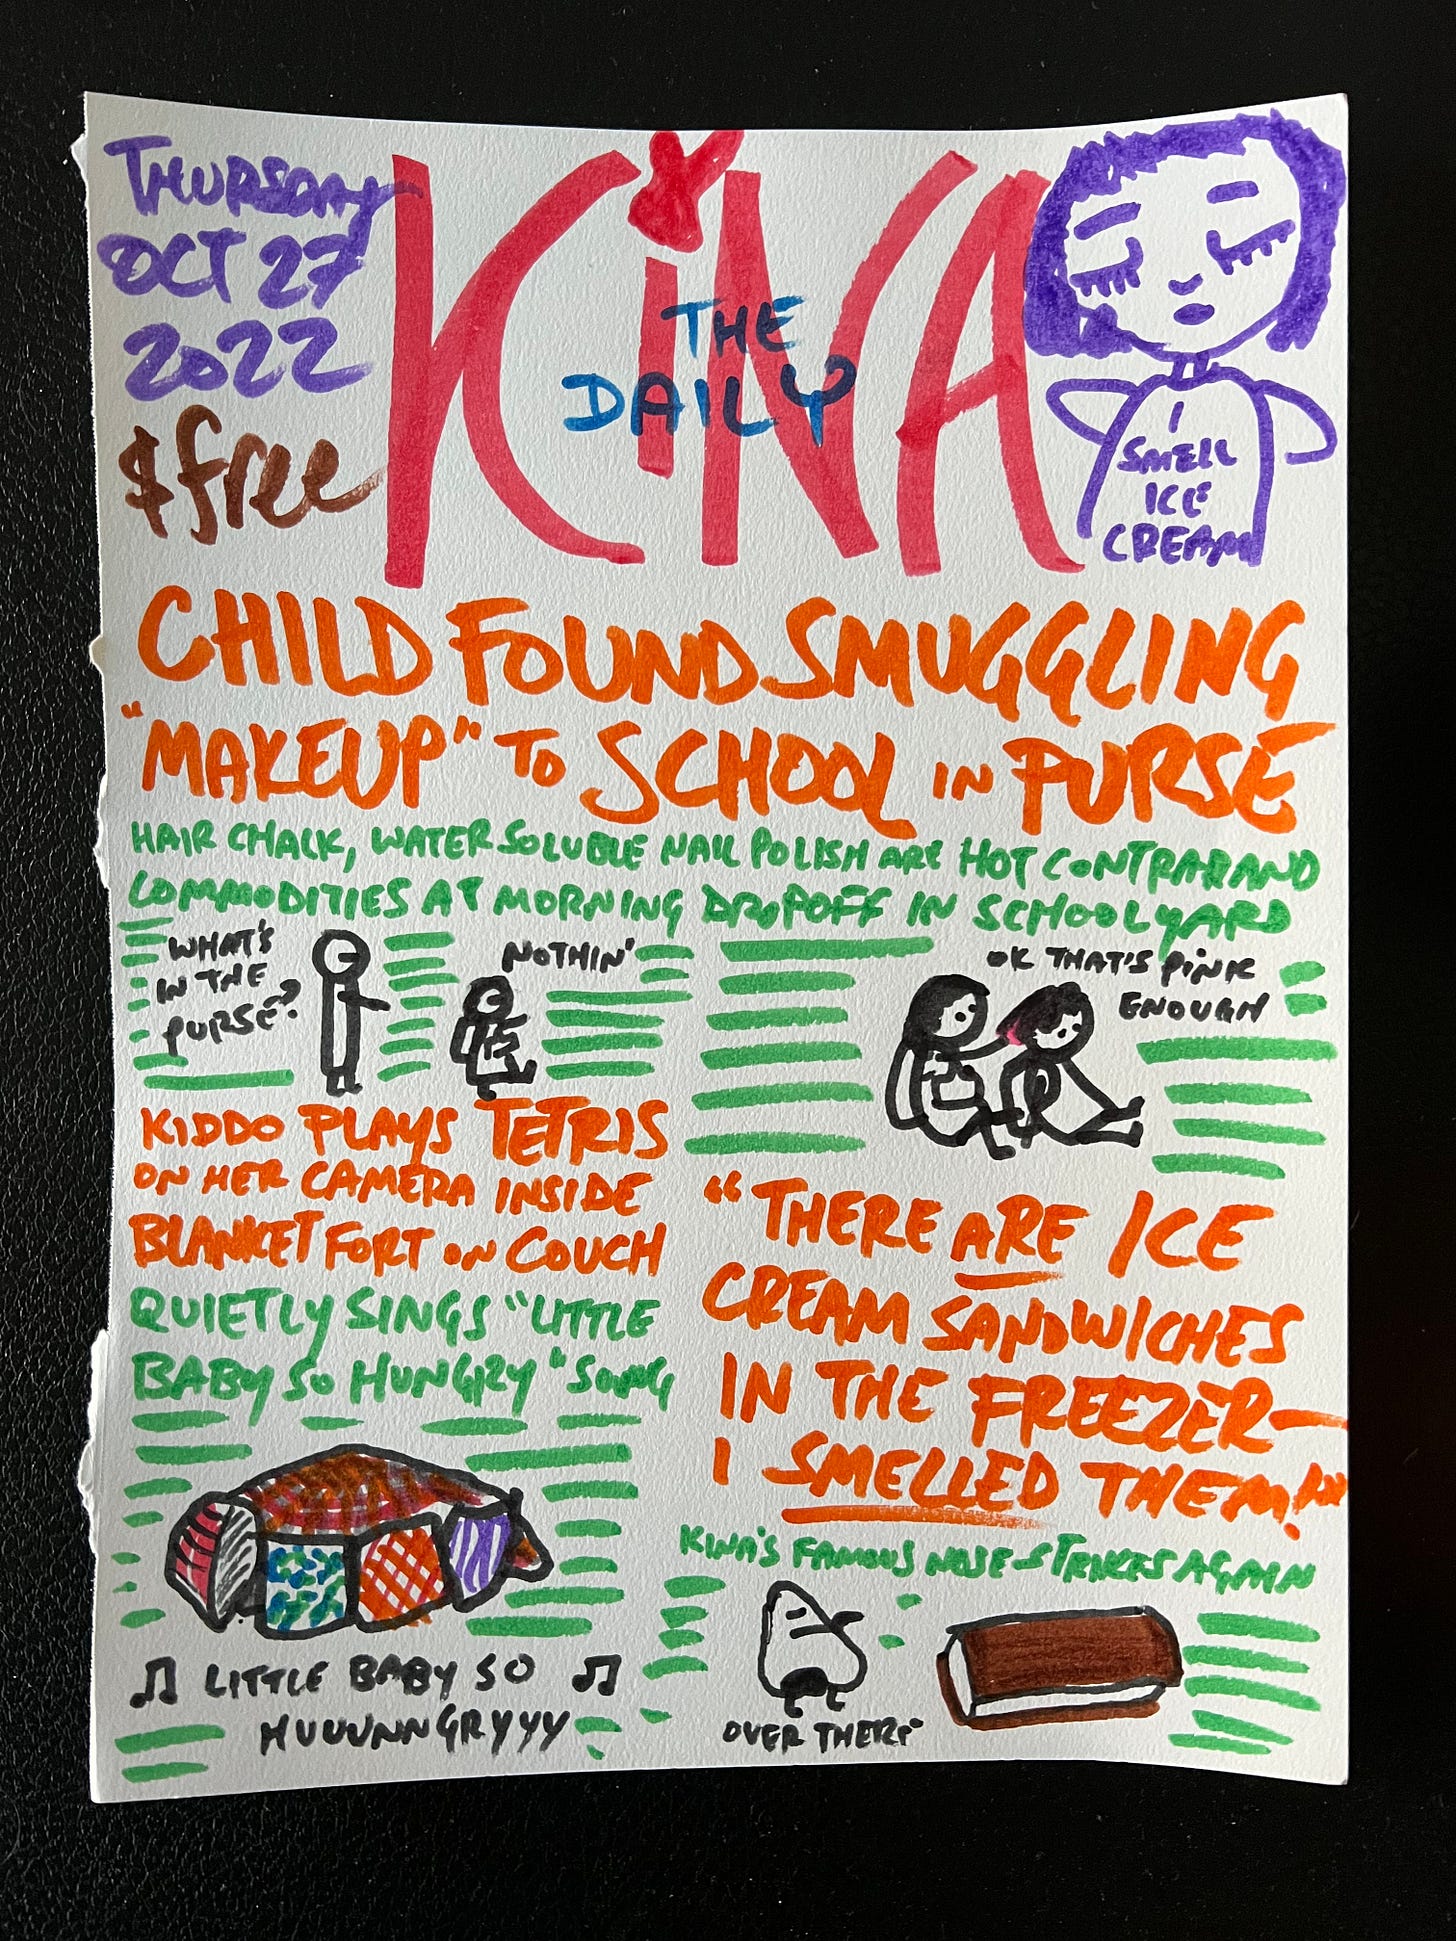 THURSDAY
OCT 27
2022
$free
KiNA
THE
DAILY
I
SMELL
ICE
CREAM
CHILD FOUND SMUGGLING
"MAKEUP" TO SCHOOL IN PURSE
HAIR CHALK, WATER SOLUBLE NAIL POLISH ARE HOT CONTRABAND
COMMODITIES AT MORNING DROPOFF IN SCHOOLYARD
WHAT'S
IN THE
PURSE?
NOTHIN'
OK THAT'S PINK
ENOUGH
KIDDO PLAYS TETRIS
ON HER CAMERA INSIDE
BLANKET FORT ON COUCH
QUIETLY SINGS "LITTLE
BABY SO HUNGRY" SONG
♫ LITTLE BABY SO ♫
HUUUNNGRYYY
"THERE ARE ICE
CREAM SANDWICHES
IN THE FREEZER—
I SMELLED THEM!"
KINA'S FAMOUS NOSE STRIKES AGAIN
OVER THERE